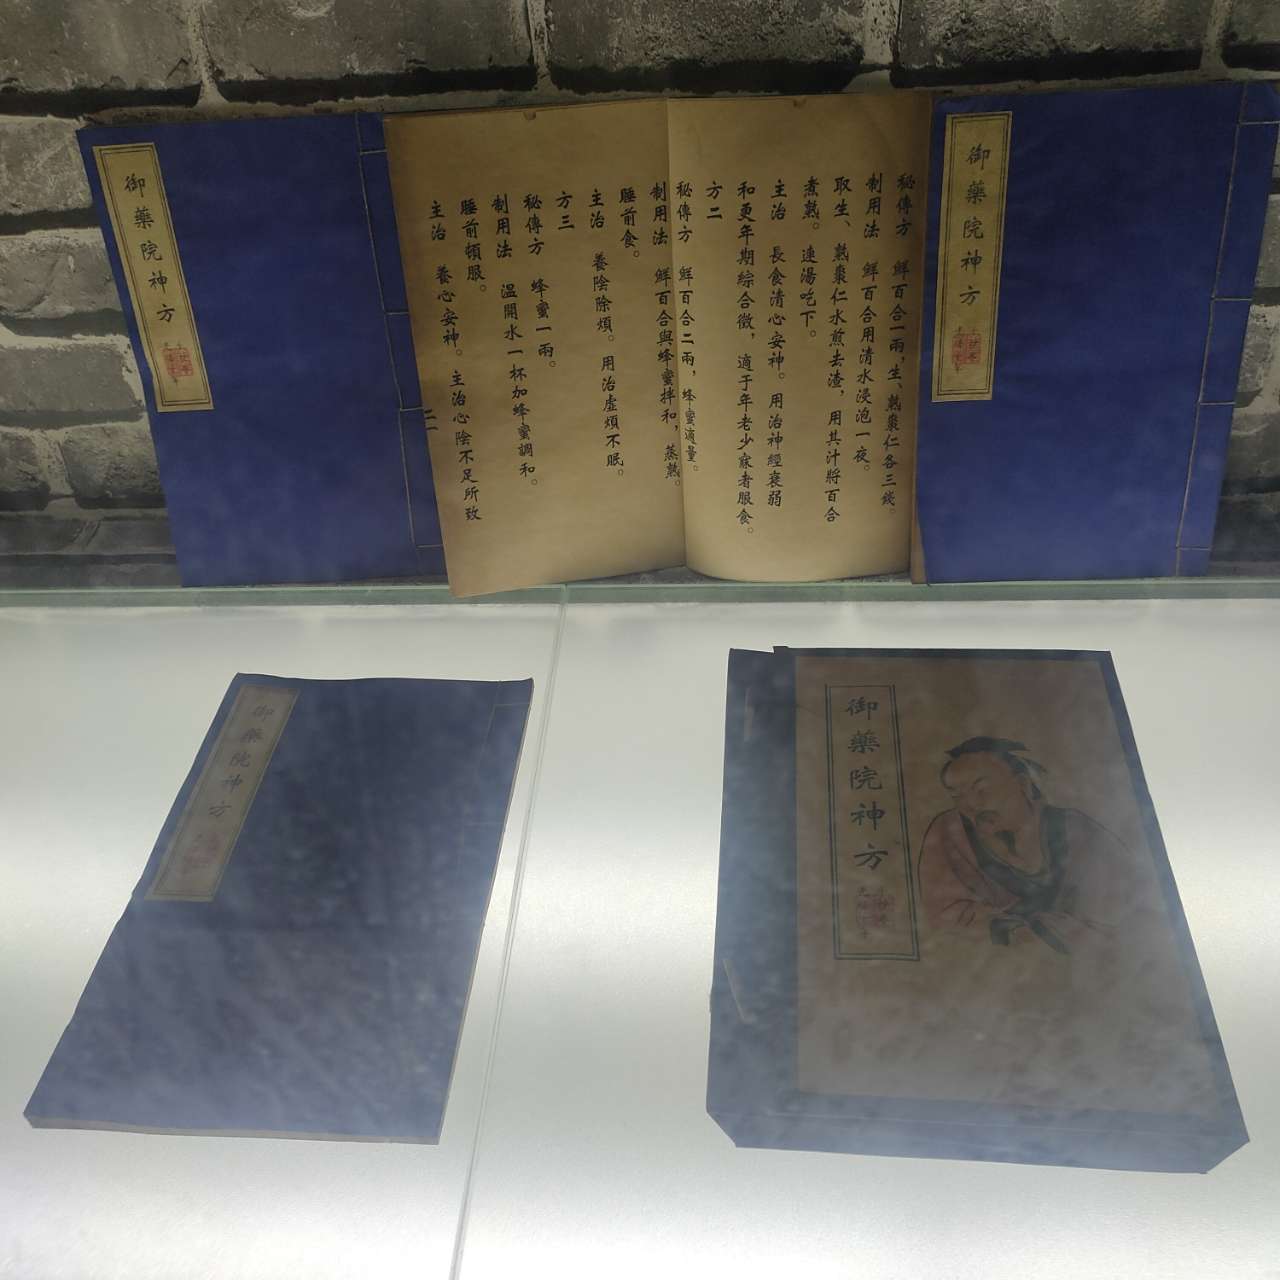 御藥院神方
秘傳方　鮮百合一兩，生、熟棗仁各三錢。
制用法　鮮百合用清水浸泡一夜。
取生、熟棗仁水煎去渣，用其汁將百合
煮熟。連湯吃下。
主治　長食清心安神。用治神經衰弱
和更年期綜合徵，適于年老少寐者服食。
方二
秘傳方　鮮百合二兩，蜂蜜適量。
制用法　鮮百合與蜂蜜拌和，蒸熟。
睡前食。
主治　養陰除煩。用治虛煩不眠。
方三
秘傳方　蜂蜜一兩。
制用法　溫開水一杯加蜂蜜調和。
睡前頓服。
主治　養心安神。主治心陰不足所致
二一
御藥院神方
御藥院神方
御藥院神方